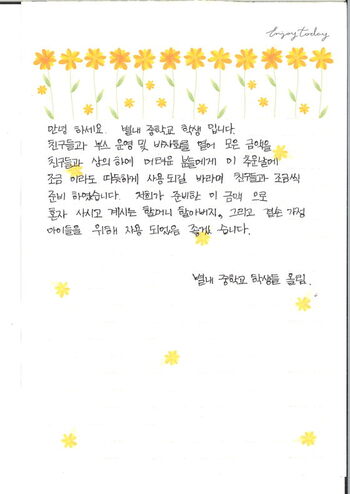 Enjoy today
안녕 하세요. 별내 중학교 학생 입니다.
친구들과 부스 운영 및 바자회를 열어 모은 금액을
친구들과 상의 하여 어려운 분들에게 이 추운날에
조금 이라도 따듯하게 사용 되길 바라며 친구들과 조금씩
준비 하였습니다. 저희가 준비한 이 금액 으로
혼자 사시고 계시는 할머니 할아버지, 그리고 결손 가정
아이들을 위해 사용 되었음 좋겠 습니다.
별내 중학교 학생들 올림.